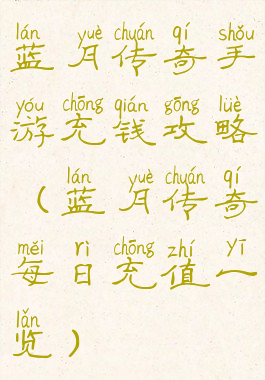 lán yuè chuán qí shǒu
蓝月传奇手
yóu chōng qián gōng lüè
游充钱攻略
lán yuè chuán qí
（蓝月传奇
měi rì chōng zhí yī
每日充值一
lǎn
览）